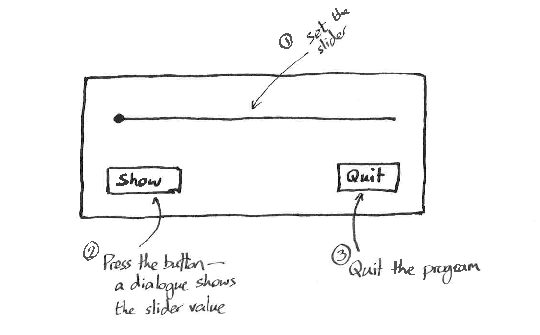 ① Set the
slider
Show
Quit
② Press the button —
a dialogue shows
the slider value
③ Quit the program